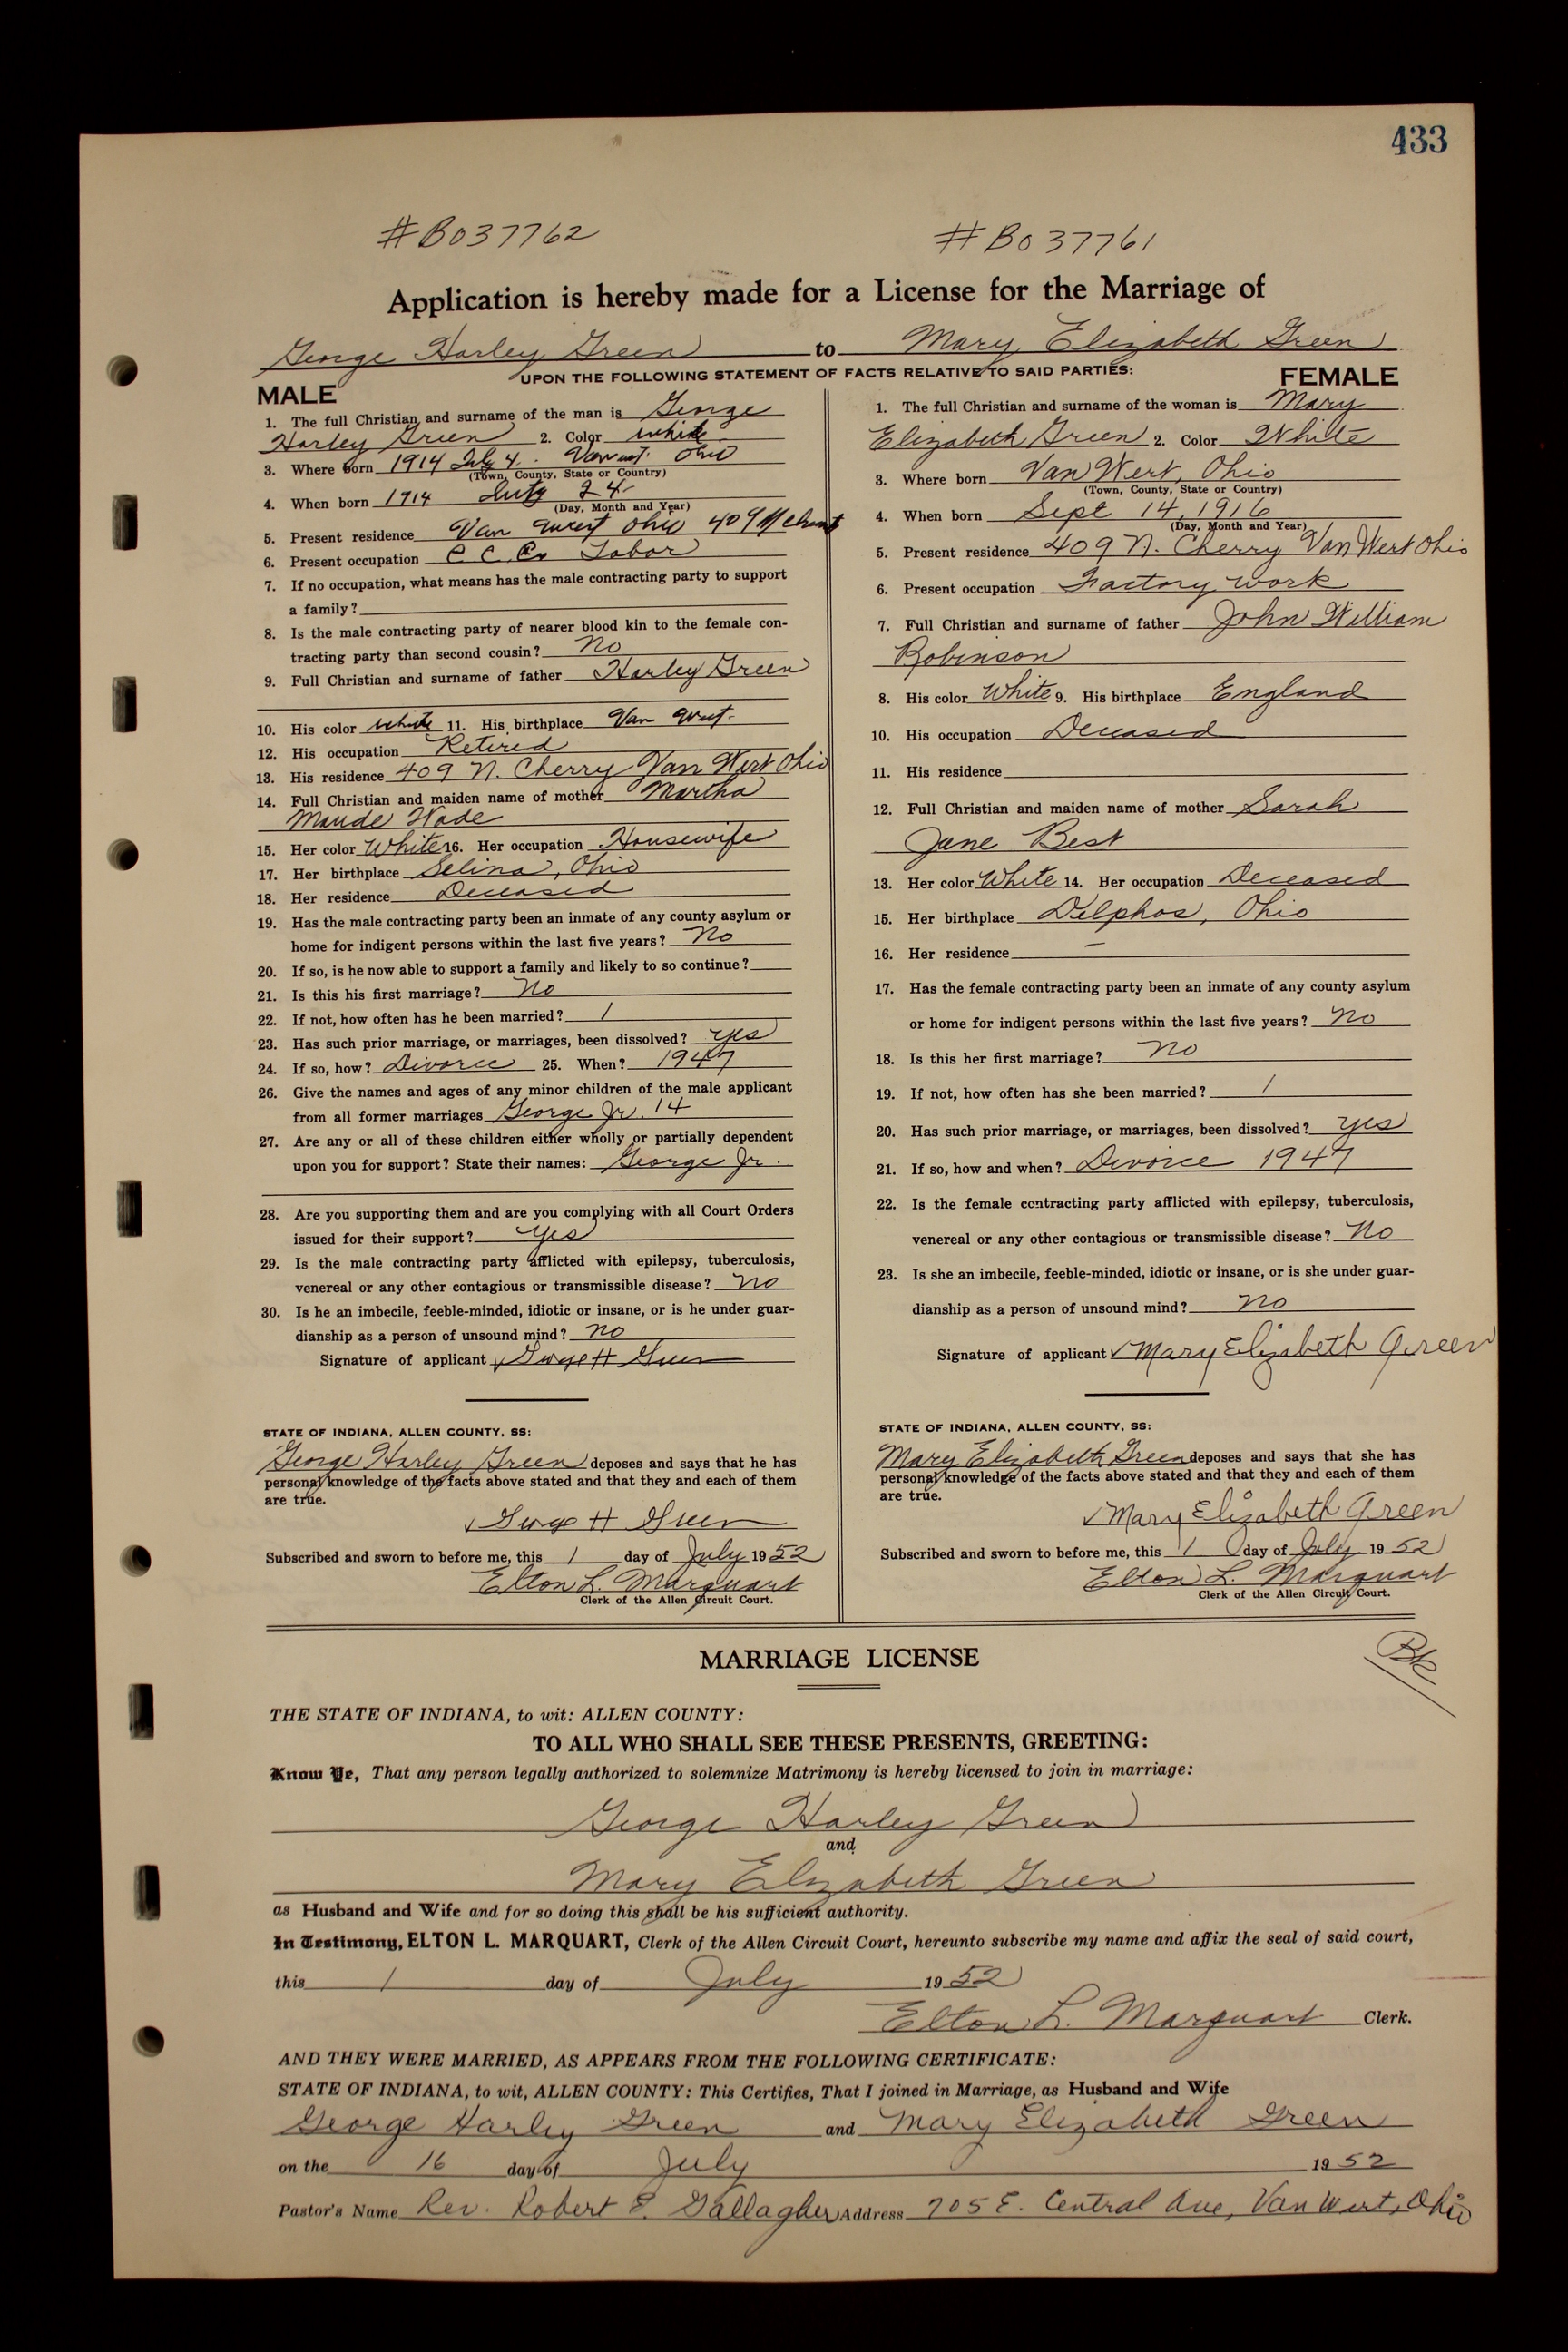 433
#B037762 #B037761
Application is hereby made for a License for the Marriage of
George Harley Green to Mary Elizabeth Green
UPON THE FOLLOWING STATEMENT OF FACTS RELATIVE TO SAID PARTIES:
MALE
1. The full Christian and surname of the man is George
Harley Green 2. Color white
3. Where born 1914 July 4. Van wert. Ohio
(Town, County, State or Country)
4. When born 1914 July 24
(Day, Month and Year)
5. Present residence Van wert ohio 409 N
6. Present occupation C. C. Co Labor
7. If no occupation, what means has the male contracting party to support
a family?
8. Is the male contracting party of nearer blood kin to the female con-
tracting party than second cousin? No
9. Full Christian and surname of father Harley Green
10. His color white 11. His birthplace Van Wert.
12. His occupation Retired
13. His residence 409 N. Cherry Van Wert Ohio
14. Full Christian and maiden name of mother Martha
Maude Wade
15. Her color White 16. Her occupation Housewife
17. Her birthplace Selina, Ohio
18. Her residence Deceased
19. Has the male contracting party been an inmate of any county asylum or
home for indigent persons within the last five years? No
20. If so, is he now able to support a family and likely to so continue?
21. Is this his first marriage? No
22. If not, how often has he been married? 1
23. Has such prior marriage, or marriages, been dissolved? yes
24. If so, how? Divorce 25. When? 1947
26. Give the names and ages of any minor children of the male applicant
from all former marriages George Jr. 14
27. Are any or all of these children either wholly or partially dependent
upon you for support? State their names: George Jr.
28. Are you supporting them and are you complying with all Court Orders
issued for their support? yes
29. Is the male contracting party afflicted with epilepsy, tuberculosis,
venereal or any other contagious or transmissible disease? No
30. Is he an imbecile, feeble-minded, idiotic or insane, or is he under guar-
dianship as a person of unsound mind? No
Signature of applicant George H Green
STATE OF INDIANA, ALLEN COUNTY, SS:
George Harley Green deposes and says that he has
personal knowledge of the facts above stated and that they and each of them
are true.
George H Green
Subscribed and sworn to before me, this 1 day of July 1952
Elton L. Marquart
Clerk of the Allen Circuit Court.
FEMALE
1. The full Christian and surname of the woman is Mary
Elizabeth Green 2. Color White
3. Where born Van Wert, Ohio
(Town, County, State or Country)
4. When born Sept 14, 1916
(Day, Month and Year)
5. Present residence 409 N. Cherry Van Wert Ohio
6. Present occupation Factory work
7. Full Christian and surname of father John William
Robinson
8. His color White 9. His birthplace England
10. His occupation Deceased
11. His residence
12. Full Christian and maiden name of mother Sarah
Jane Best
13. Her color White 14. Her occupation Deceased
15. Her birthplace Delphos, Ohio
16. Her residence —
17. Has the female contracting party been an inmate of any county asylum
or home for indigent persons within the last five years? No
18. Is this her first marriage? No
19. If not, how often has she been married? 1
20. Has such prior marriage, or marriages, been dissolved? yes
21. If so, how and when? Divorce 1947
22. Is the female contracting party afflicted with epilepsy, tuberculosis,
venereal or any other contagious or transmissible disease? No
23. Is she an imbecile, feeble-minded, idiotic or insane, or is she under guar-
dianship as a person of unsound mind? No
Signature of applicant Mary Elizabeth Green
STATE OF INDIANA, ALLEN COUNTY, SS:
Mary Elizabeth Green deposes and says that she has
personal knowledge of the facts above stated and that they and each of them
are true.
Mary Elizabeth Green
Subscribed and sworn to before me, this 1 day of July 1952
Elton L. Marquart
Clerk of the Allen Circuit Court.
MARRIAGE LICENSE
BK
THE STATE OF INDIANA, to wit: ALLEN COUNTY:
TO ALL WHO SHALL SEE THESE PRESENTS, GREETING:
Know Ye, That any person legally authorized to solemnize Matrimony is hereby licensed to join in marriage:
George Harley Green
and
Mary Elizabeth Green
as Husband and Wife and for so doing this shall be his sufficient authority.
In Testimony, ELTON L. MARQUART, Clerk of the Allen Circuit Court, hereunto subscribe my name and affix the seal of said court,
this 1 day of July 1952
Elton L. Marquart Clerk.
AND THEY WERE MARRIED, AS APPEARS FROM THE FOLLOWING CERTIFICATE:
STATE OF INDIANA, to wit, ALLEN COUNTY: This Certifies, That I joined in Marriage, as Husband and Wife
George Harley Green and Mary Elizabeth Green
on the 16 day of July 1952
Pastor's Name Rev. Robert E. Gallagher Address 705 E. Central Ave, Van Wert, Ohio